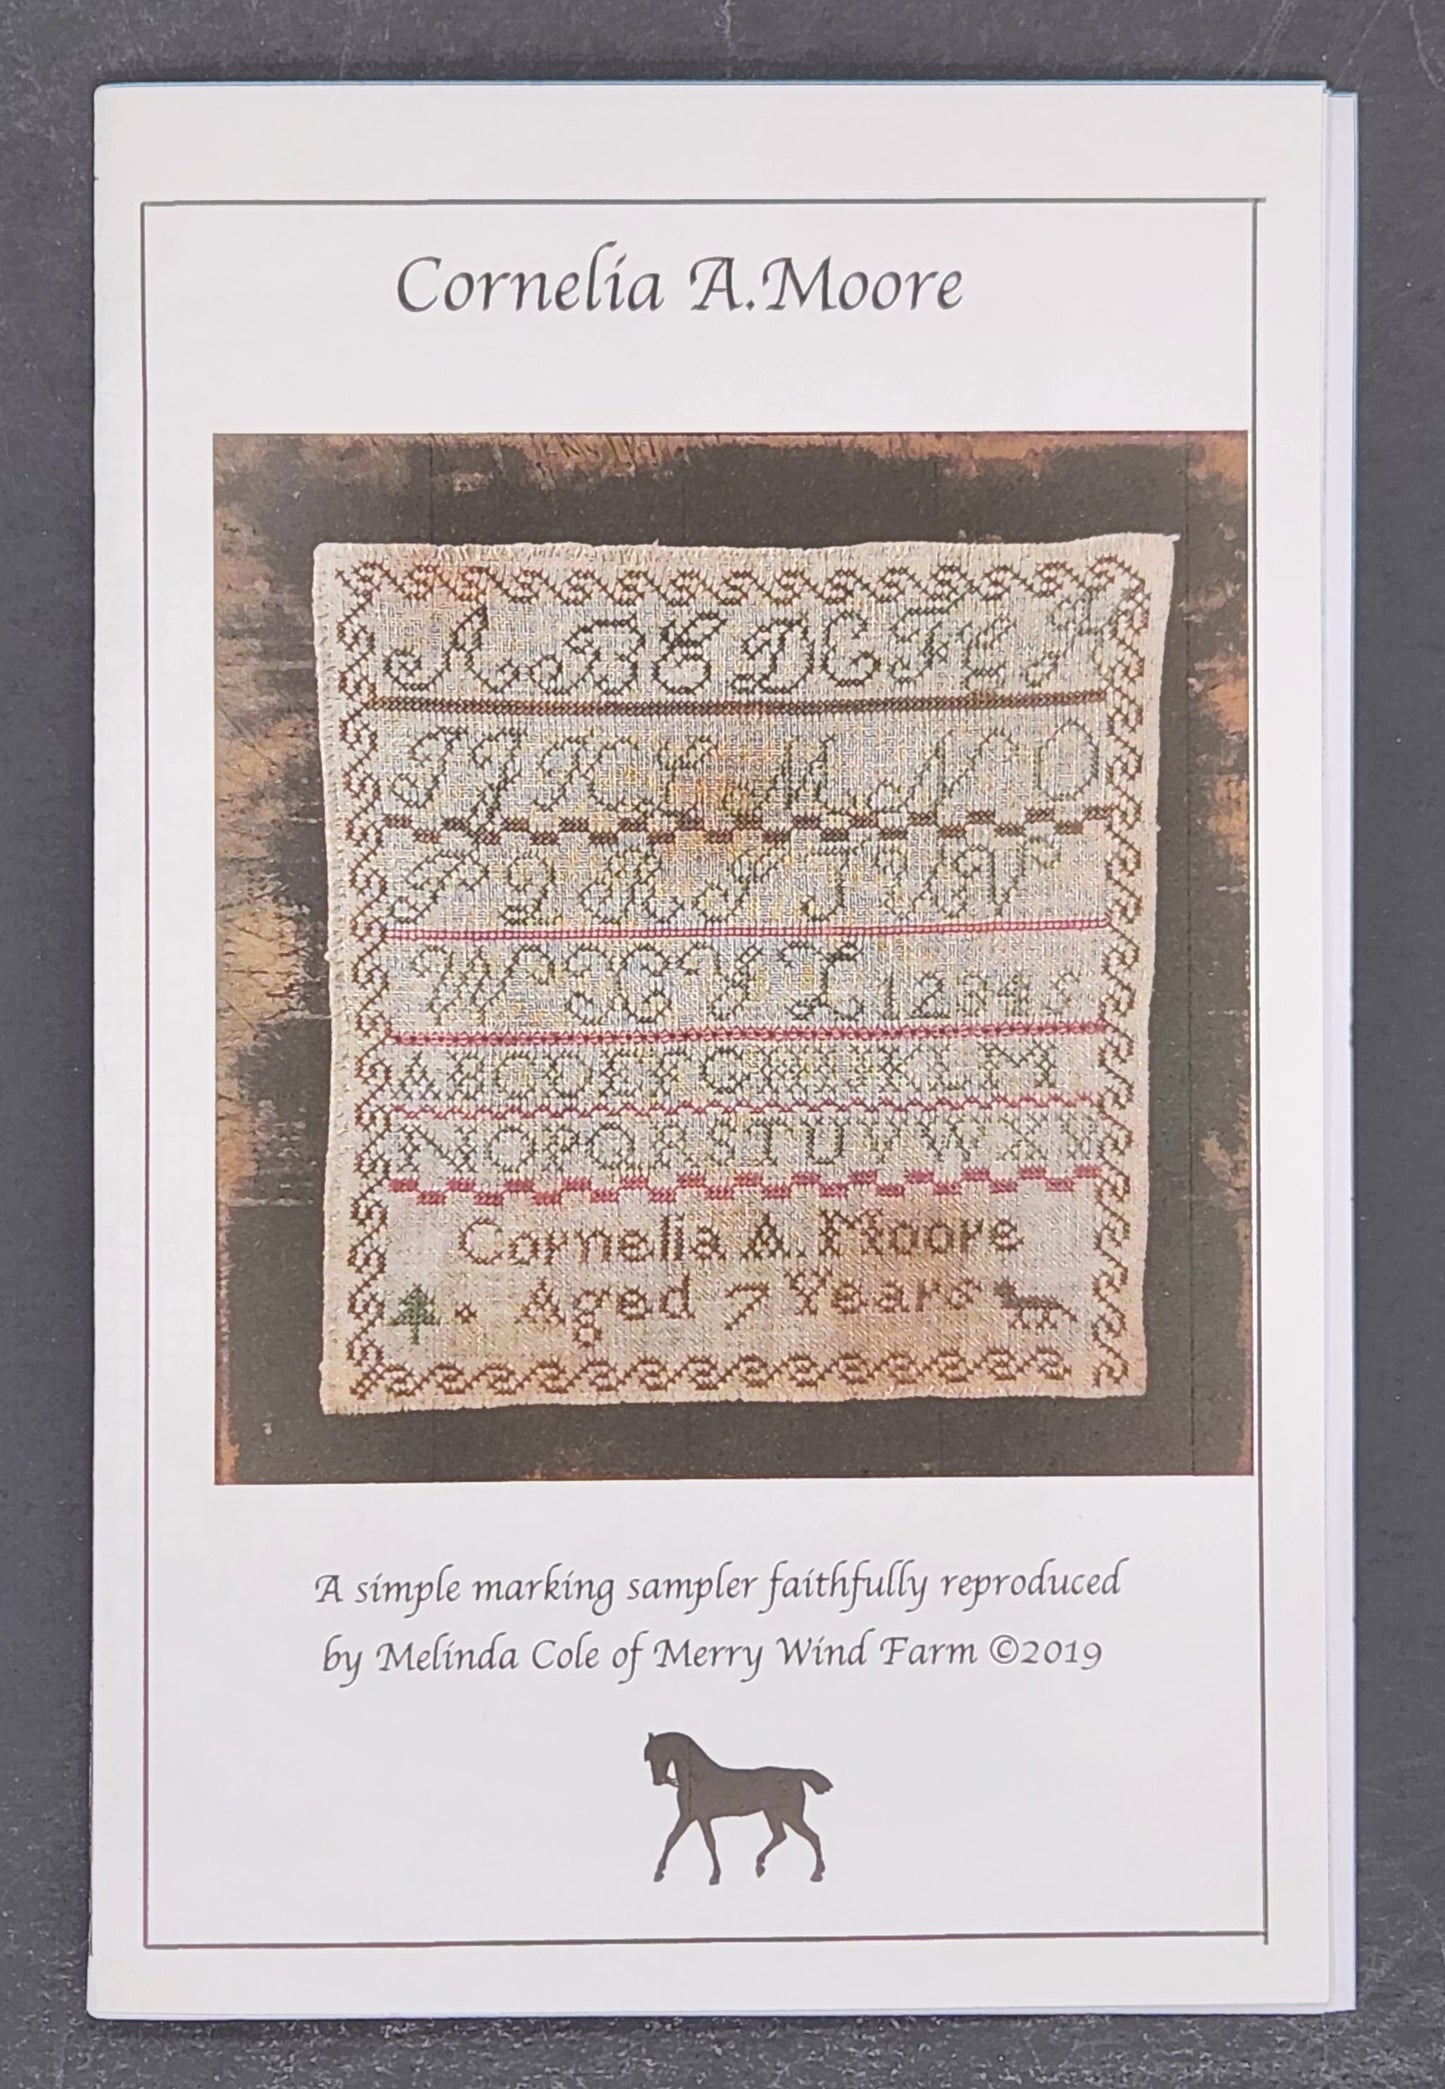 Cornelia A. Moore
A B C D E F G H
I J K L M N O
P Q R S T U V
W X Y Z 1 2 3 4 5
A B C D E F G H I J K L M
N O P Q R S T U V W X Y
Cornelia A. Moore
Aged 7 Years
A simple marking sampler faithfully reproduced
by Melinda Cole of Merry Wind Farm ©2019